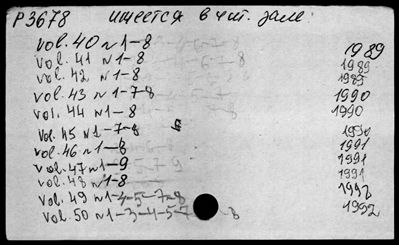 P3678 имеется в чит. зале
vol. 40 N 1-8 1989
vol. 41 N 1-8 1989
vol. 42 N 1-8 1989
vol. 43 N 1-7-8 1990
vol. 44 N 1-8 1990
vol. 45 N 1-7-8 1990
vol. 46 N 1-8 1991
vol. 47 N 1-9 1991
vol. 48 N 1-8 1991
vol. 49 N 1-4-5-7-8 1992
vol. 50 N 1-3-4-5-7-8 1992